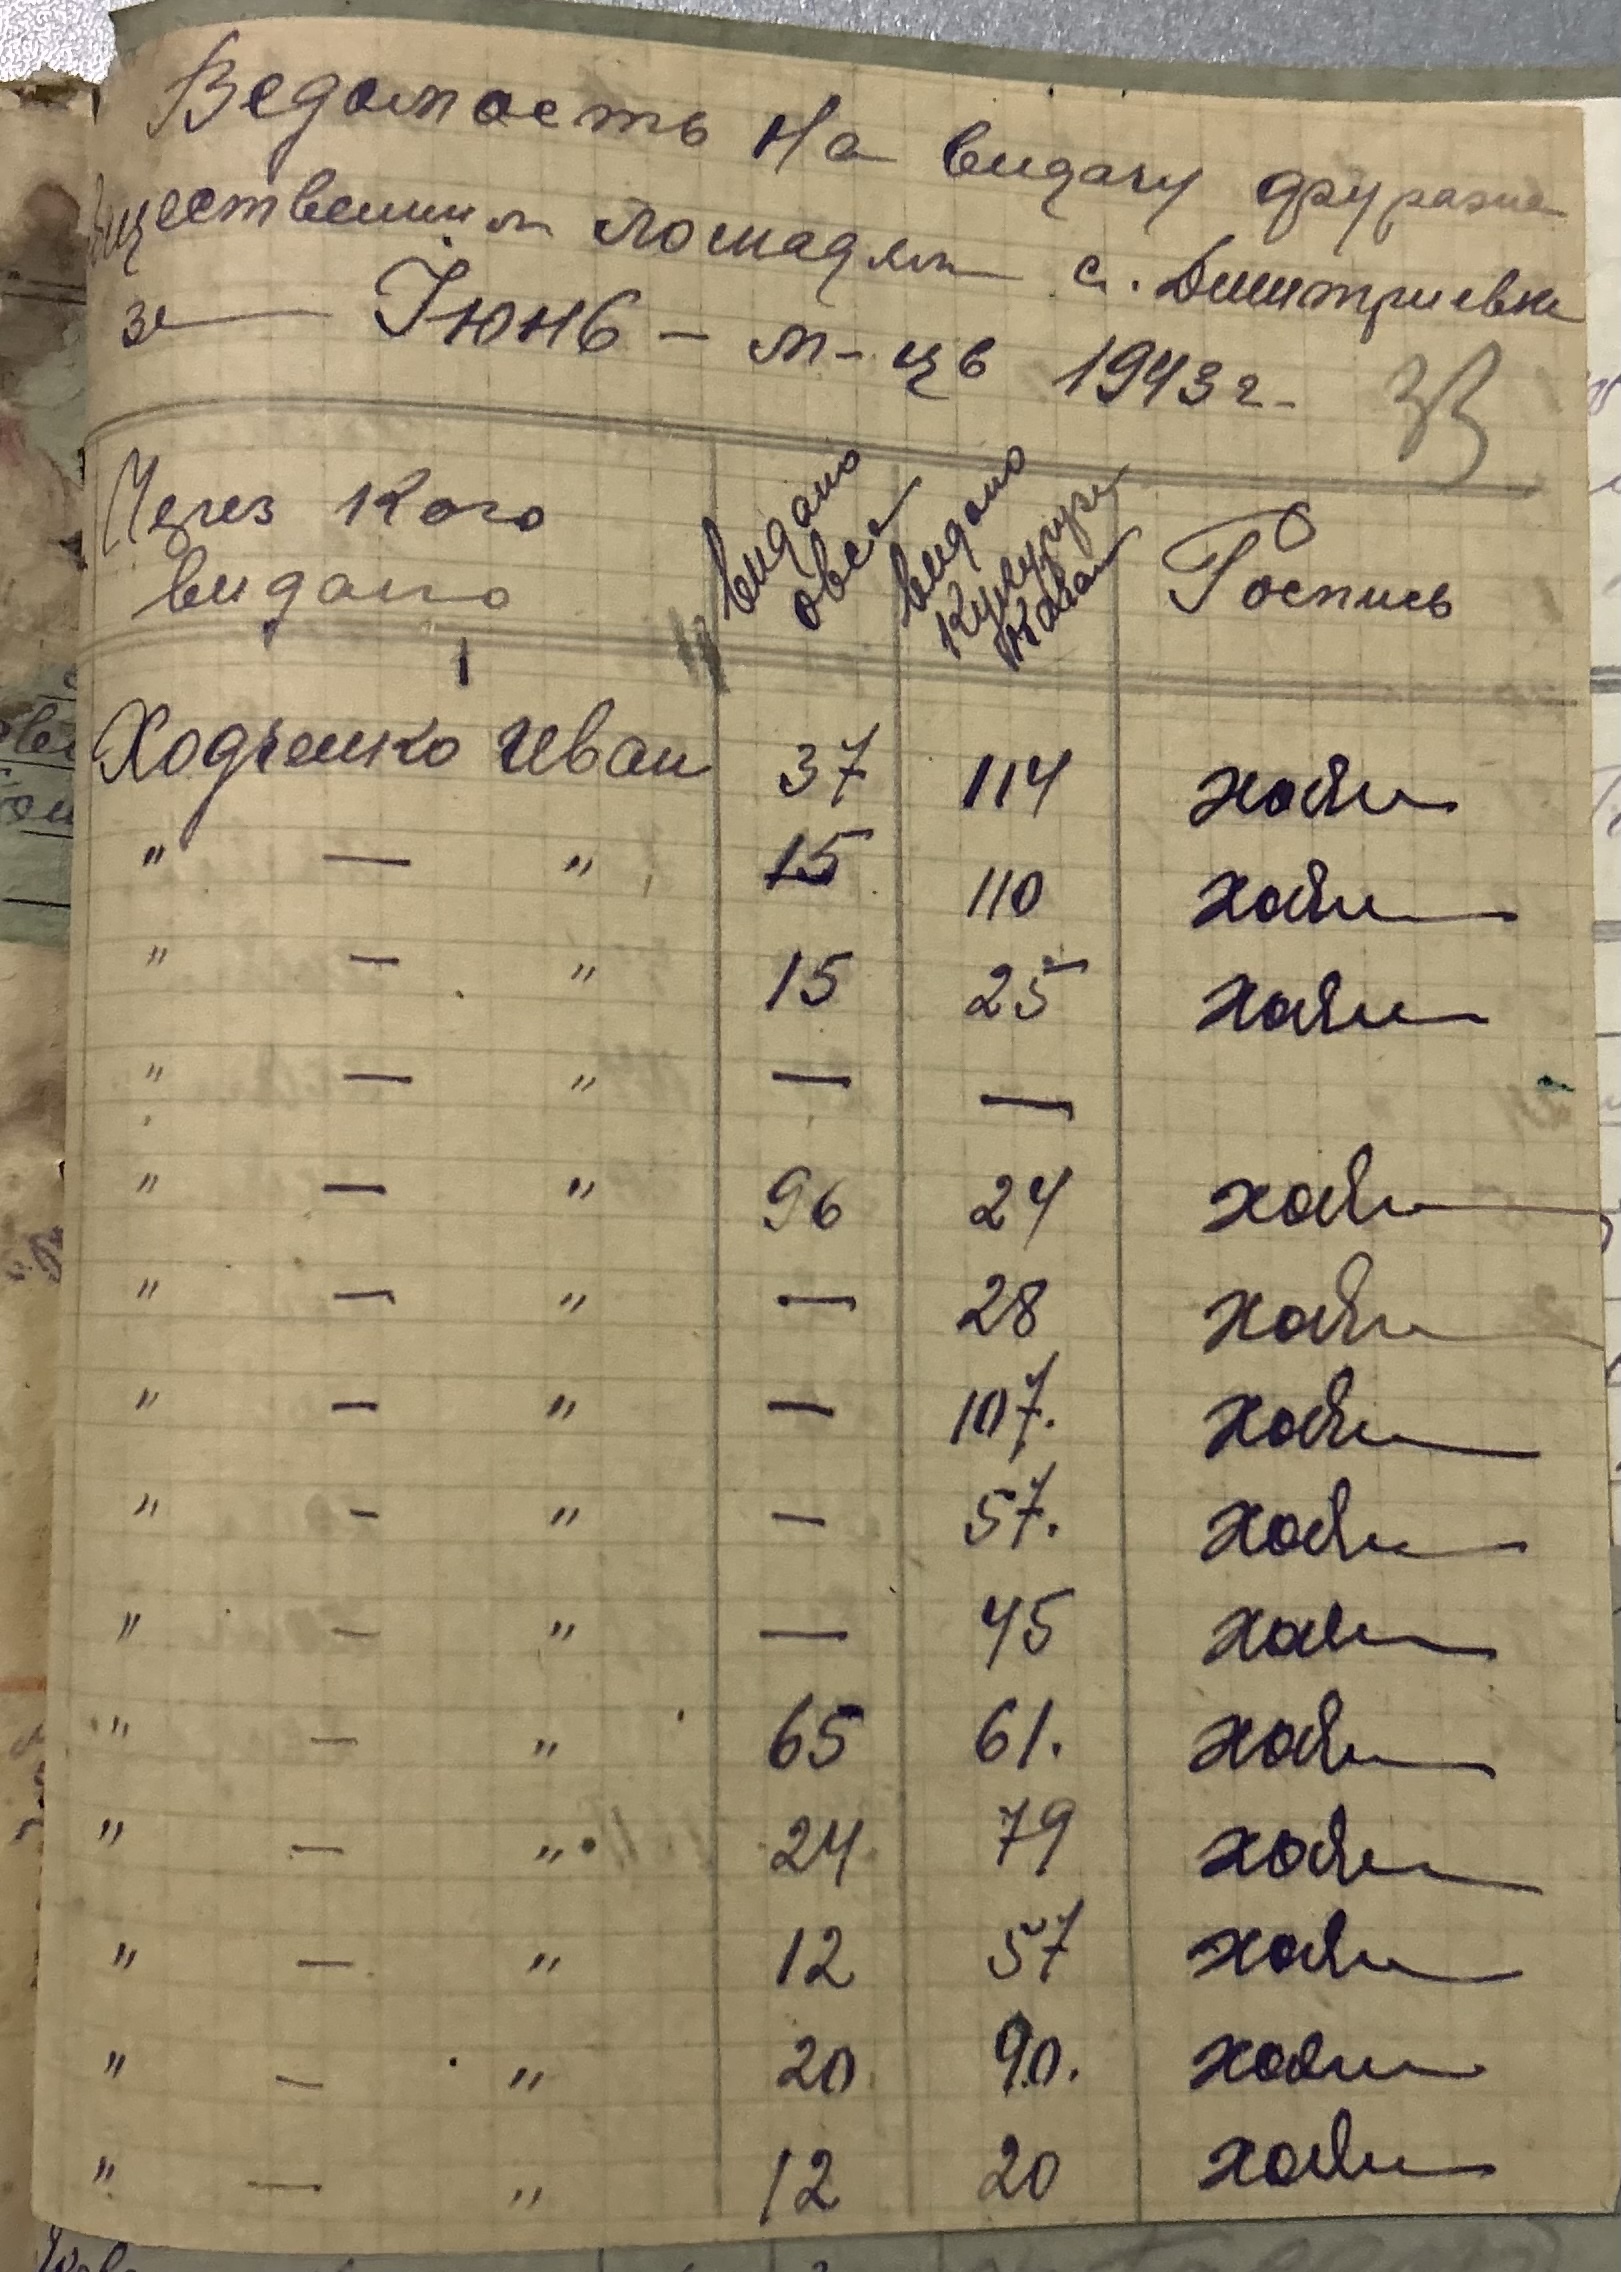 Ведомость на видачу фуража
бщественним лошадям с. Дмитриевка
за Июнь - м-ць 1943 г.
33
Через кого видано
видано овса
видано кукурузи
Роспись
1
Ходченко Иван 37 114 ходч
" — " 15 110 ходч
" — " 15 25 ходч
" — " — —
" — " 96 24 ходч
" — " — 28 ходч
" — " — 107. ходч
" — " — 57. ходч
" — " — 45 ходч
" — " 65 61. ходч
" — " 24 79 ходч
" — " 12 57 ходч
" — " 20 90. ходч
" — " 12 20 ходч